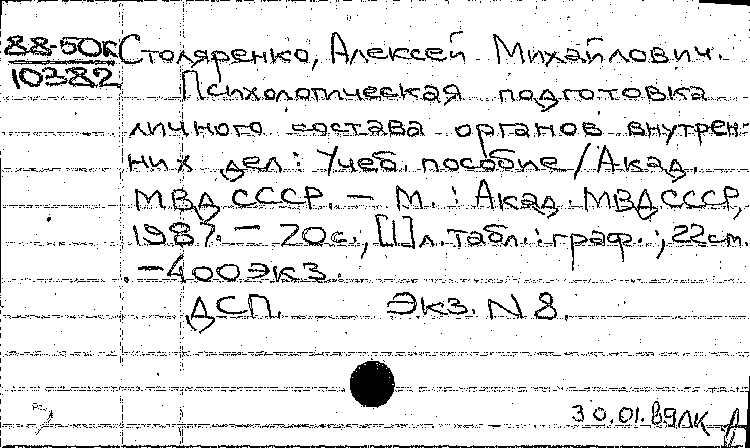 88-50к Столяренко, Алексей Михайлович.
10382 Психологическая подготовка
личного состава органов внутрен-
них дел: Учеб. пособие / Акад.
МВД СССР. — М.: Акад. МВД СССР,
1987. — 70 с., [1] л. табл.: граф.; 22 см.
. — 400 экз.
ДСП. Экз. N 8.
30.01.89